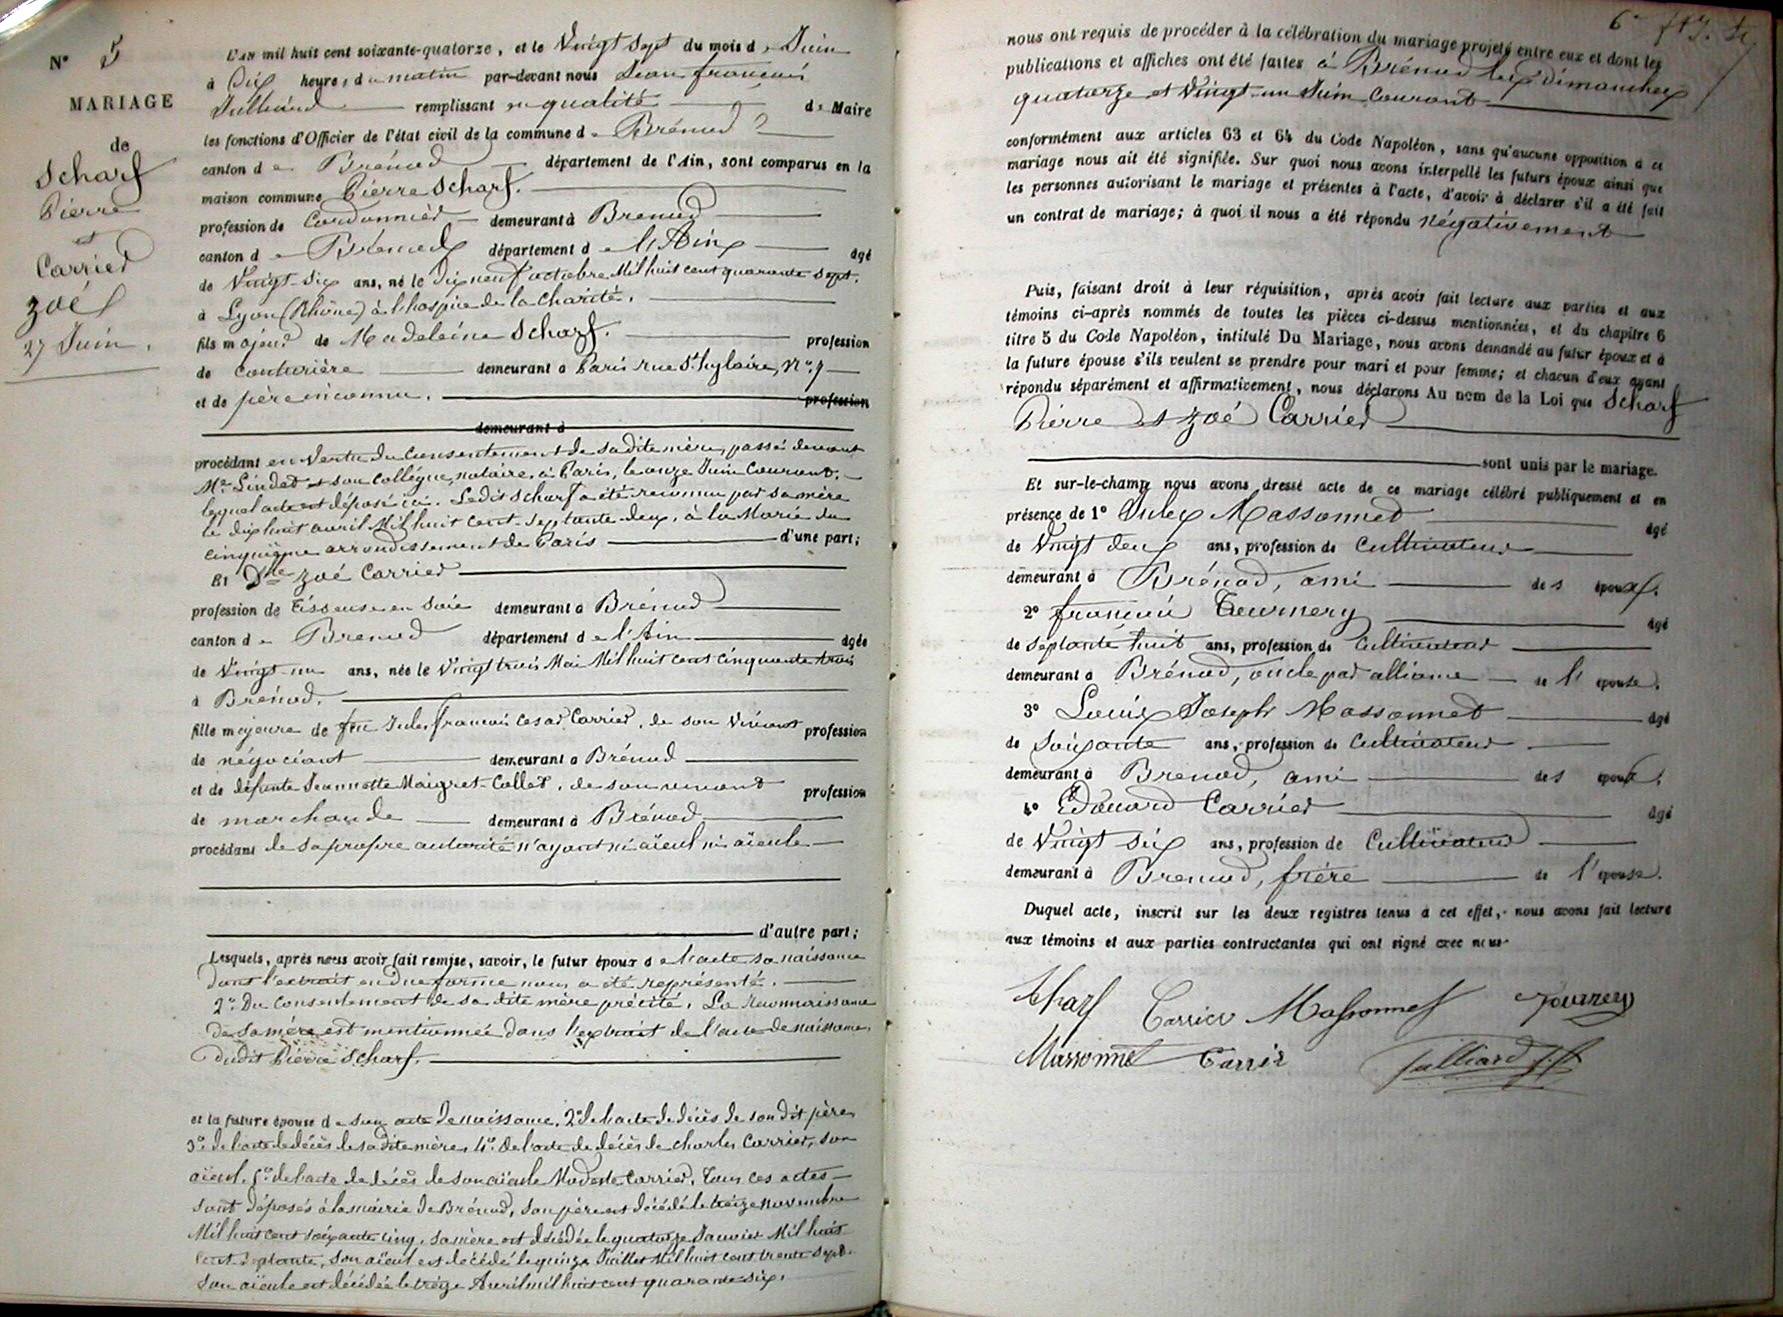 N° 5
MARIAGE
de
Scharf
Pierre
et
Carrier
Zoé
27 Juin.
L'AN mil huit cent soixante-quatorze, et le Vingt sept du mois de Juin
à Dix heures du matin par-devant nous Jean françois
Julliard remplissant en qualité de Maire
les fonctions d'Officier de l'état civil de la commune de Brénod
canton de Brénod département de l'Ain, sont comparus en la
maison commune Pierre Scharf.
profession de Cordonnier demeurant à Brenod
canton de Brénod département de l'Ain âgé
de Vingt-six ans, né le dix neuf octobre Mil huit cent quarante sept.
à Lyon (Rhône) à l'hospice de la Charité.
fils majeur de Madeleine Scharf. profession
de couturière demeurant à Paris rue St hylaire, N° 7
et de père inconnu. profession
demeurant à
procédant en vertu du consentement de sa dite mère, passé devant
Me Lindet et son collègue, notaire, à Paris, le onze Juin courant.
lequel acte est déposé ici. Ledit Scharf a été reconnu par sa mère
le dix huit avril Mil huit cent septante deux, à la Marie du
cinquième arrondissement de Paris d'une part;
Et Dlle Zoé Carrier
profession de Tisseuse en soie demeurant à Brénod
canton de Brenod département de l'Ain âgée
de Vingt-un ans, née le Vingt trois Mai Mil huit cent cinquante trois
à Brénod.
fille majeure de feu Jules françois César Carrier, de son vivant profession
de négociant demeurant à Brénod
et de défunte Jeannette Maigret-Collet, de son vivant profession
de marchande demeurant à Brénod
procédant de sa propre autorité n'ayant ni aïeul ni aïeule
d'autre part;
Lesquels, après nous avoir fait remise, savoir, le futur époux de l'acte sa naissance
dont l'extrait en due forme nous a été représenté.
2° Du consentement de sa dite mère précité. La reconnaissance
de sa mère est mentionnée dans l'extrait de l'acte de naissance,
dudit Pierre Scharf.
et la future épouse de son acte de naissance. 2° de l'acte de décès de son dit père,
3° de l'acte de décès de sa dite mère, 4° de l'acte de décès de Charles Carrier, son
aïeul. 5° de l'acte de décès de son aïeule Modeste Carrier. Tous ces actes
sont déposés à la mairie de Brénod, son père est décédé le treize novembre
Mil huit cent soixante cinq, sa mère est décédée le quatorze Janvier Mil huit
cent septante, son aïeul est décédé le quinze Juillet Mil huit cent trente sept.
Son aïeule est décédée le treize Avril mil huit cent quarante six.
nous ont requis de procéder à la célébration du mariage projeté entre eux et dont les
publications et affiches ont été faites à Brénod les dimanches
quatorze et Vingt-un Juin courant
conformément aux articles 63 et 64 du Code Napoléon, sans qu'aucune opposition à ce
mariage nous ait été signifiée. Sur quoi nous avons interpellé les futurs époux ainsi que
les personnes autorisant le mariage et présentes à l'acte, d'avoir à déclarer s'il a été fait
un contrat de mariage; à quoi il nous a été répondu négativement
Puis, faisant droit à leur réquisition, après avoir fait lecture aux parties et aux
témoins ci-après nommés de toutes les pièces ci-dessus mentionnées, et du chapitre 6
titre 5 du Code Napoléon, intitulé Du Mariage, nous avons demandé au futur époux et à
la future épouse s'ils veulent se prendre pour mari et pour femme; et chacun d'eux ayant
répondu séparément et affirmativement, nous déclarons Au nom de la Loi que Scharf
Pierre et Zoé Carrier
sont unis par le mariage.
Et sur-le-champ nous avons dressé acte de ce mariage célébré publiquement et en
présence de 1° Jules Massonnet âgé
de Vingt deux ans, profession de Cultivateur
demeurant à Brénod, ami des époux.
2° françois Tournery âgé
de septante huit ans, profession de Cultivateur
demeurant à Brénod, oncle par alliance de l'épouse.
3° Louis Joseph Massonnet âgé
de Soixante ans, profession de Cultivateur
demeurant à Brenod, ami des époux.
4° Edouard Carrier âgé
de Vingt six ans, profession de Cultivateur
demeurant à Brenod, frère de l'épouse.
Duquel acte, inscrit sur les deux registres tenus à cet effet, nous avons fait lecture
aux témoins et aux parties contractantes qui ont signé avec nous.
Scharf Carrier Massonnet Tournery
Massonnet Carrier Julliard J. f.